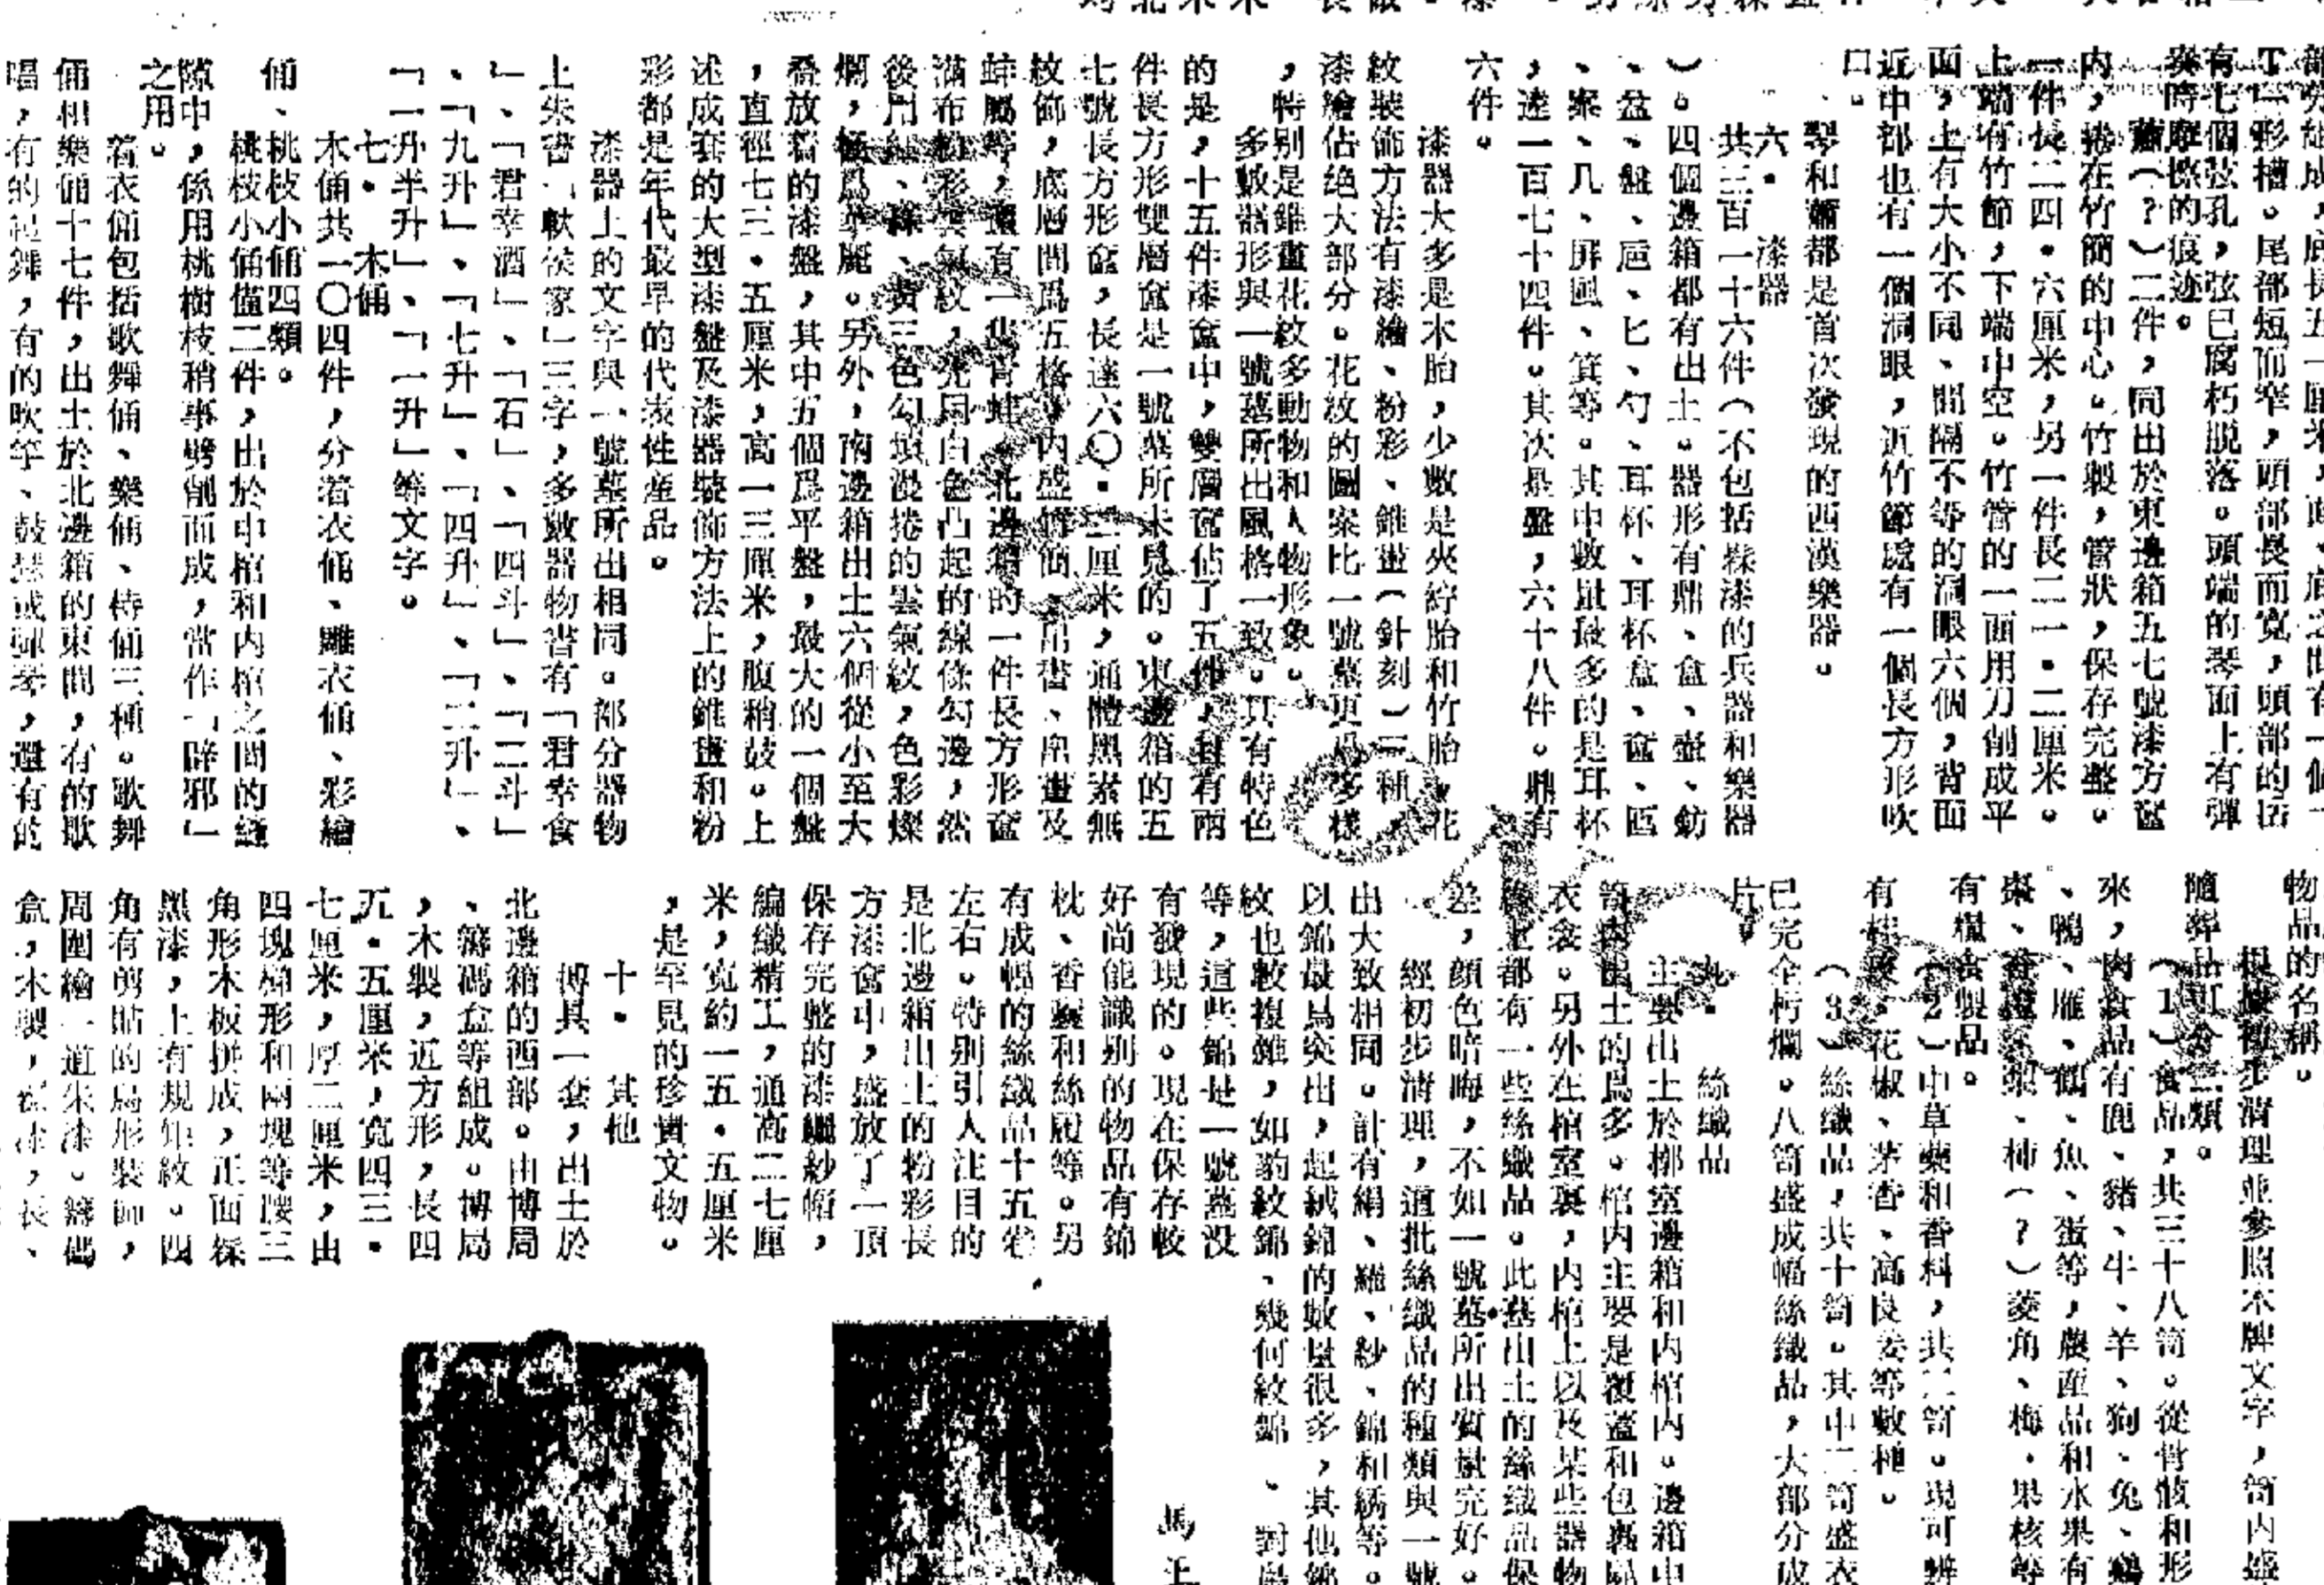 有七個弦孔,弦已腐朽脱落。頭端的琴面上有彈
奏時摩擦的痕迹。
蕭(?)二件,同出於東邊箱五七號漆方奩
内,捲在竹簡的中心。竹製,管狀,保存完整。
一件長二四·六厘米,另一件長二一·二厘米。
上端有竹節,下端中空。竹管的一面用刀削成平
面,上有大小不同、間隔不等的洞眼六個,背面
近中部也有一個洞眼,近竹節處有一個長方形吹
口。
琴和蕭都是首次發現的西漢樂器。
六· 漆器
共三百一十六件(不包括髹漆的兵器和樂器
)。四個邊箱都有出土。器形有鼎、盒、壷、鈁
、盆、盤、巵、匕、勺、耳杯、耳杯盒、奩、匜
、案、几、屏風、箕等。其中數量最多的是耳杯
,達一百七十四件。其次是盤,六十八件。鼎有
六件。
漆器大多是木胎,少數是夾紵胎和竹胎,花
紋裝飾方法有漆繪、粉彩、錐畫(針刻)三種,
漆繪佔绝大部分。花紋的圖案比一號墓更爲多樣
,特别是錐畫花紋多動物和人物形象。
多數器形與一號墓所出風格一致。具有特色
的是,十五件漆奩中,雙層奩佔了五件,且有兩
件長方形雙層奩是一號墓所未見的。東邊箱的五
七號長方形奩,長達六〇·二厘米,通體黑素無
紋飾,底層間爲五格,内盛竹簡、帛書、帛畫及
蚌屬等,還有一隻青蛙。北邊箱的一件長方形奩
滿布粉彩雲氣紋,先用白色凸起的線條勾邊,然
後用紅、綠、黃三色勾填漫捲的雲氣紋,色彩燦
爛,極爲華麗。另外,南邊箱出土六個從小至大
叠放着的漆盤,其中五個爲平盤,最大的一個盤
,直徑七三·五厘米,高一三厘米,腹稍鼓。上
述成套的大型漆盤及漆器裝飾方法上的錐畫和粉
彩都是年代最早的代表性産品。
漆器上的文字與一號墓所出相同。部分器物
上朱書「軑侯家」三字,多數器物書有「君幸食
」、「君幸酒」、「石」、「四斗」、「二斗」
、「九升」、「七升」、「四升」、「二升」、
「一升半升」、「一升」等文字。
七· 木俑
木俑共一〇四件,分着衣俑、雕衣俑、彩繪
俑、桃枝小俑四類。
桃枝小俑僅二件,出於中棺和内棺之間的縫
隙中,係用桃樹枝稍事劈削而成,當作「辟邪」
之用。
着衣俑包括歌舞俑、樂俑、侍俑三種。歌舞
俑和樂俑十七件,出土於北邊箱的東間,有的歌
唱,有的起舞,有的吹竽、鼓瑟或彈琴,還有的
物品的名稱。
根據初步清理並參照木牌文字,笥内盛
隨葬品可分三類。
(1)食品,共三十八笥。從骨骸和形
來,肉食品有鹿、豬、牛、羊、狗、兔、鷄
、鴨、雁、鶴、魚、蛋等,農産品和水果有
棗、香橙、梨、柿(?)菱角、梅、果核等
有糧食製品。
(2)中草藥和香料,共二笥。現可辨
有桂皮、花椒、茅香、高良姜等數種。
(3)絲織品,共十笥。其中二笥盛衣
已完全朽爛。八笥盛成幅絲織品,大部分成
片。
九· 絲織品
主要出土於槨室邊箱和内棺内。邊箱中
笥内出土的爲多。棺内主要是覆蓋和包裹屍
衣衾。另外在棺室裏,内棺上以及某些器物
綠上都有一些絲織品。此墓出土的絲織品保
差,顔色暗晦,不如一號墓所出質量完好。
經初步清理,這批絲織品的種類與一號
出大致相同。計有絹、羅、紗、錦和綉等。
以錦最爲突出,起絨錦的數量很多,其他錦
紋也較複雜,如豹紋錦、幾何紋錦、對鳥
等,這些錦是一號墓没
有發現的。現在保存較
好尚能識别的物品有錦
枕、香囊和絲履等。另
有成幅的絲織品十五卷
左右。特别引人注目的
是北邊箱出土的粉彩長
方漆奩中,盛放了一頂
保存完整的漆纚紗帽,
編織精工,通高二七厘
米,寬約一五·五厘米
,是罕見的珍貴文物。
十· 其他
博具一套,出土於
北邊箱的西部。由博局
、籌碼盒等組成。博局
,木製,近方形,長四
五·五厘米,寬四三·
七厘米,厚二厘米,由
四塊梯形和兩塊等腰三
角形木板拼成,正面髹
黑漆,上有規矩紋。四
角有剪貼的鳥形裝飾,
周圍繪一道朱漆。籌碼
盒,木製,髹漆,長、
馬王